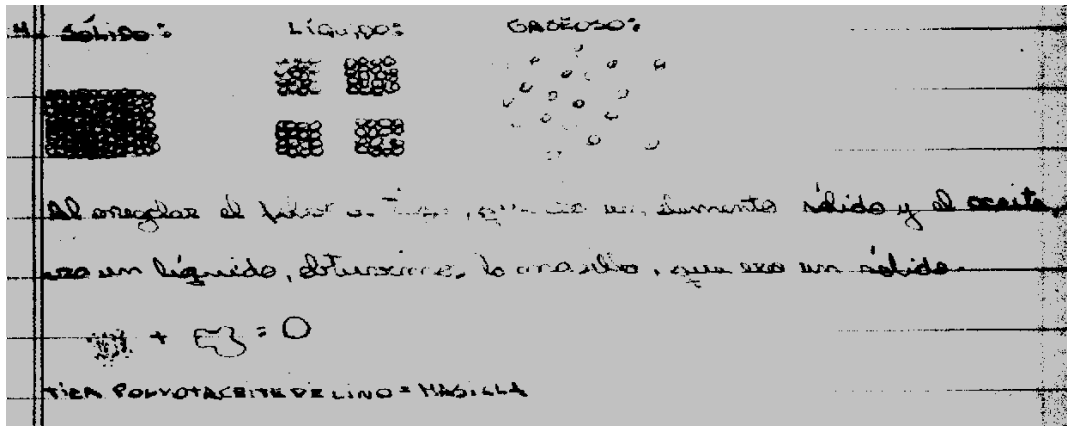 4. SÓLIDO: LÍQUIDO: GASEUSO:
Al arreglar el en , que era un elemento sólido y el aceite,
era un líquido, obtuvimos, la masilla, que era un sólido.
+ = 
TIZA POLVO+ACEITE DE LINO = MASILLA